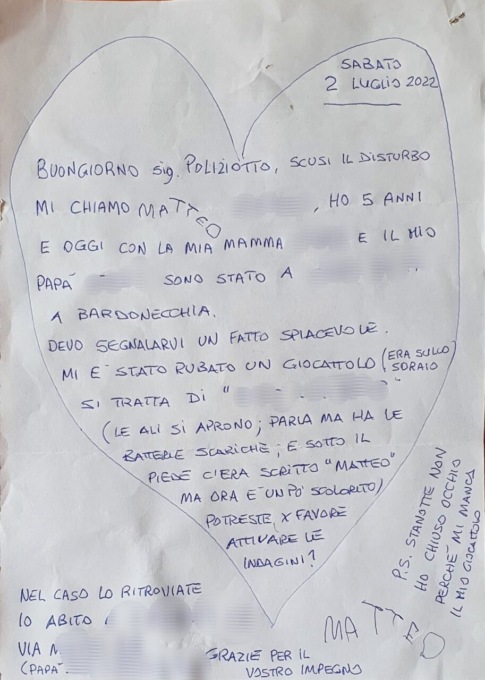 SABATO
2 LUGLIO 2022
BUONGIORNO Sig. POLIZIOTTO, SCUSI IL DISTURBO
MI CHIAMO MATTEO , HO 5 ANNI
E OGGI CON LA MIA MAMMA E IL MIO
PAPA' SONO STATO A
A BARDONECCHIA.
DEVO SEGNALARVI UN FATTO SPIACEVOLE.
MI E' STATO RUBATO UN GIOCATTOLO (ERA SULLO
SDRAIO
SI TRATTA DI " "
(LE ALI SI APRONO; PARLA MA HA LE
BATTERIE SCARICHE; E SOTTO IL
PIEDE C'ERA SCRITTO "MATTEO"
MA ORA E' UN PO' SCOLORITO)
POTRESTE X FAVORE
ATTIVARE LE
INDAGINI?
P.S. STANOTTE NON
HO CHIUSO OCCHIO
PERCHE' MI MANCA
IL MIO GIOCATTOLO
NEL CASO LO RITROVIATE
IO ABITO
VIA
(PAPA'
MATTEO
GRAZIE PER IL
VOSTRO IMPEGNO